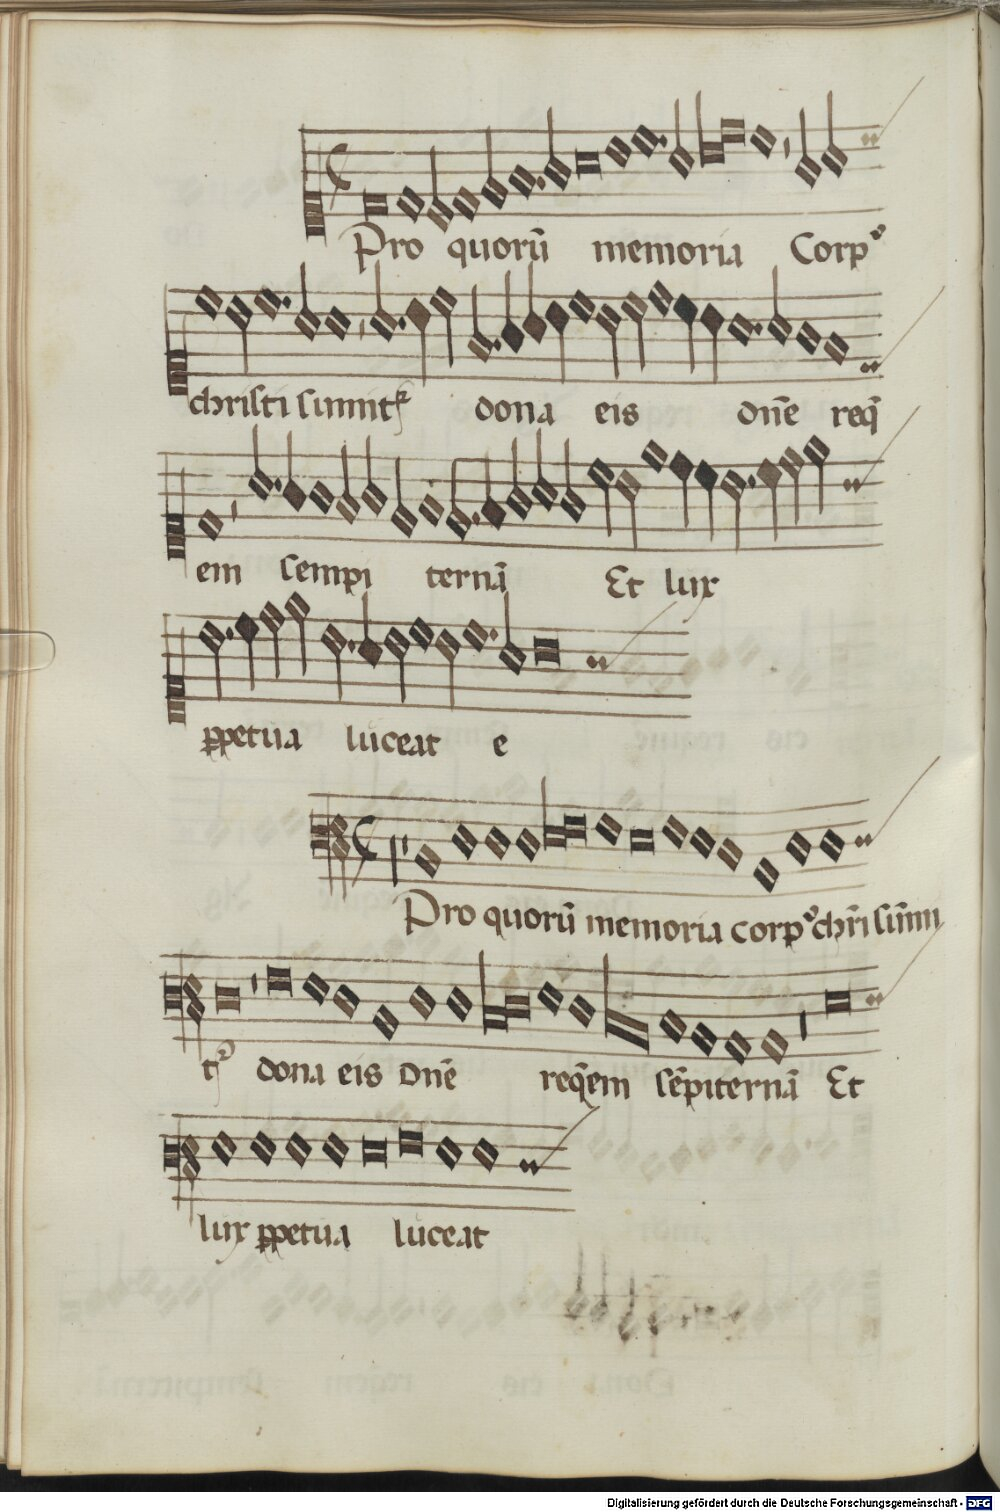 Pro quorū memoria Corpꝰ
christi sumitꝛ dona eis dn̄e req̄
em sempi ternā Et lux
ꝑpetua luceat e
Pro quorū memoria corpꝰ chr̄i sum̄i
tꝛ dona eis Dn̄e req̄em sēpiternā Et
lux ꝑpetua luceat
Digitalisierung gefördert durch die Deutsche Forschungsgemeinschaft - DFG